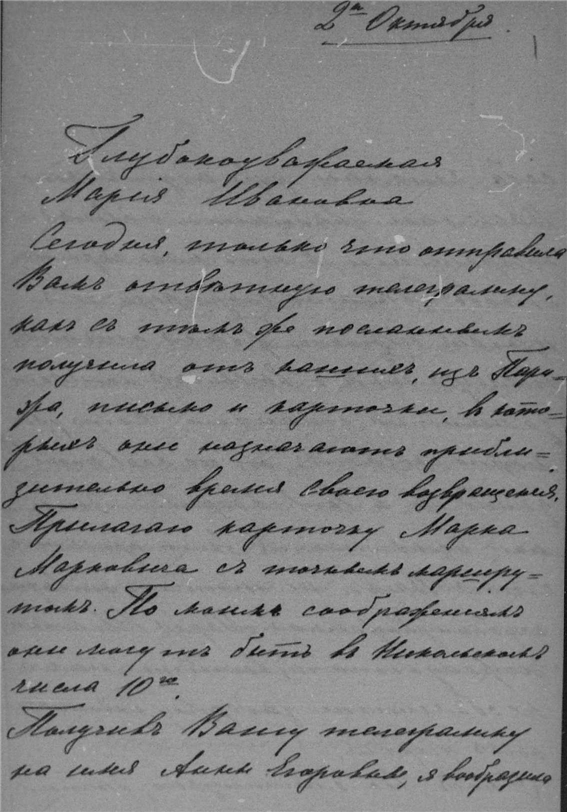 2го Октября.
Глубокоуважаемая
Марія Ивановна
Сегодня, только что отправила
Вамъ отвѣтную телеграмму,
какъ съ тѣмъ же посланнымъ
получила отъ нашихъ, изъ Пари-
жа, письмо и карточки, въ кото-
рыхъ они назначаютъ прибли-
зительно время своего возвращенія.
Прилагаю карточку Марка
Марковича съ точнымъ маршру-
томъ. По моимъ соображеніямъ
они могутъ быть въ Никольскомъ
числа 10го.
Получивъ Вашу телеграмму
на имя Анны Егоровны, я вообразила